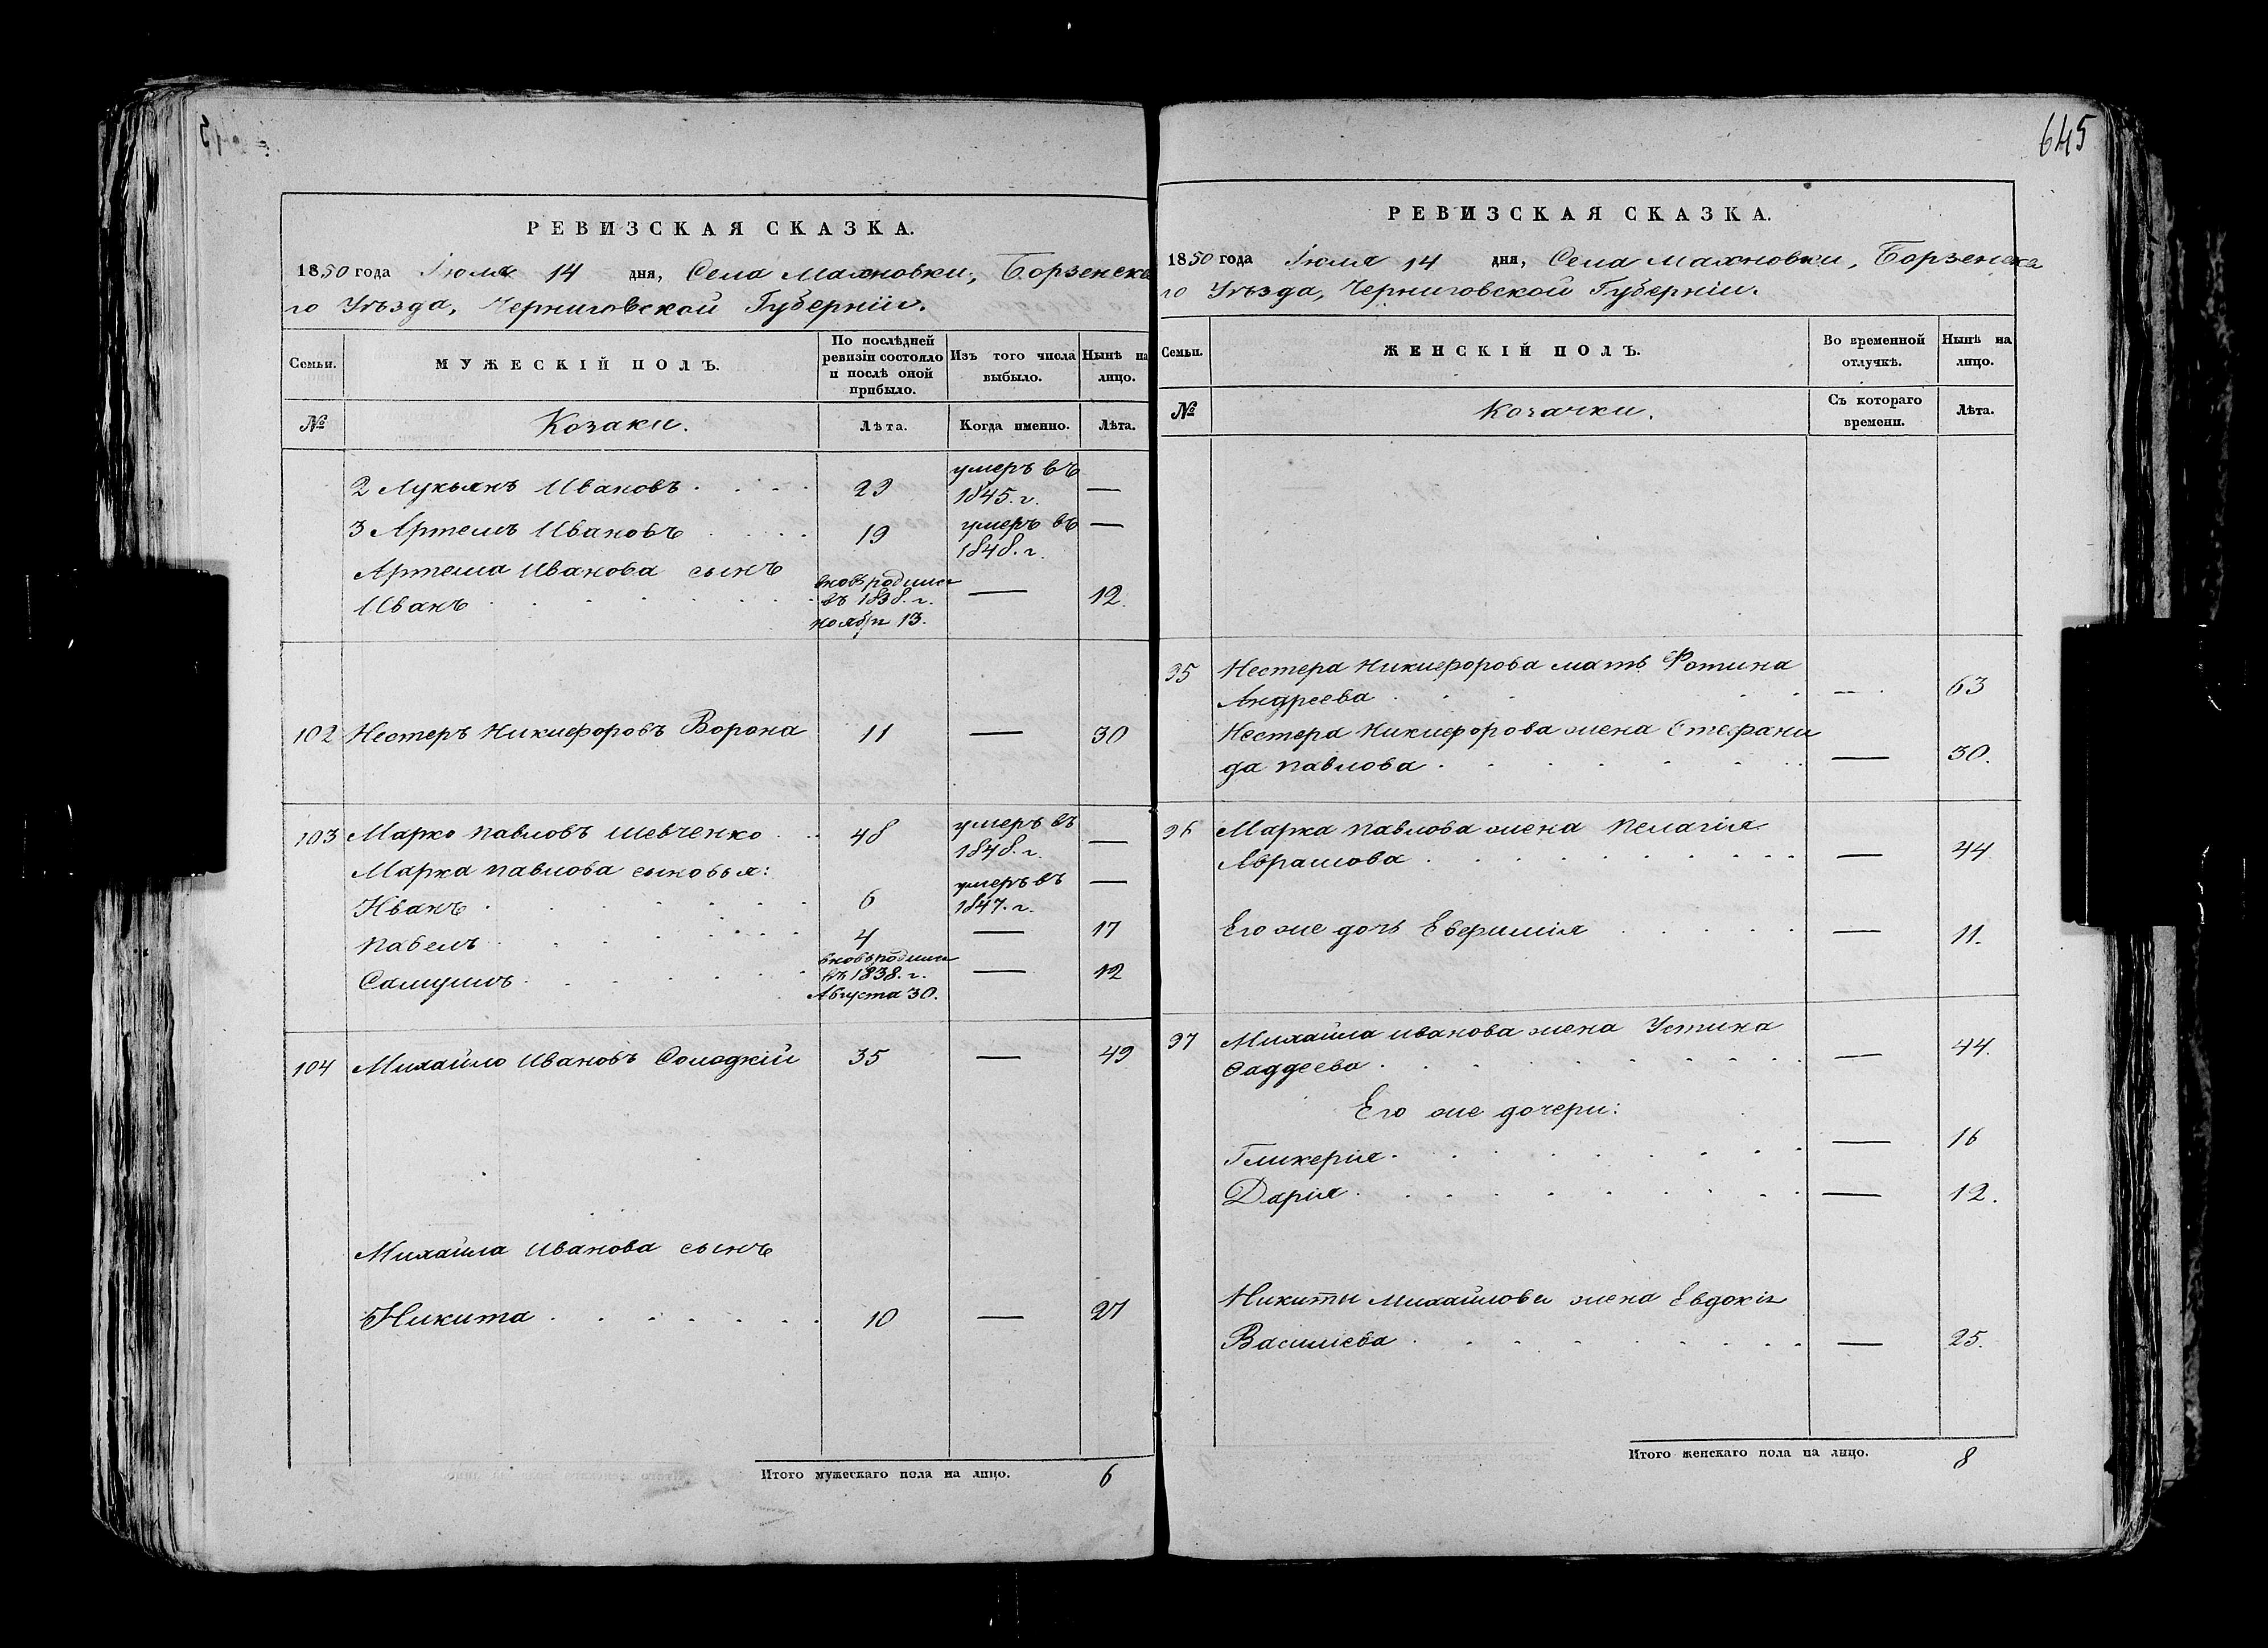 645
РЕВИЗСКАЯ СКАЗКА.
1850 года Іюля 14 дня, Села Махновки, Борзенска
го Уѣзда, Черниговской Губерніи.
Семьи.
МУЖЕСКІЙ ПОЛЪ.
По послѣдней
ревизіи состояло
и послѣ оной
прибыло.
Изъ того числа
выбыло.
Нынѣ на
лицо.
№
Козаки.
Лѣта.
Когда именно.
Лѣта.
2 Лукьянъ Ивановъ . . . . 29 умеръ въ 1845. г. —
3 Артемъ Ивановъ . . . . 19 умеръ въ 1848. г. —
Артема Иванова сынъ
Иванъ . . . . . . . вновь родился въ 1838. г. ноября 13. — 12.
102 Нестеръ Никифоровъ Ворона 11 — 30
103 Марко Павловъ Шевченко . . 48 умеръ въ 1848. г. —
Марка Павлова сыновья:
Иванъ . . . . . . . 6 умеръ въ 1847. г. —
Павелъ . . . . . . . 4 — 17
Самуилъ . . . . . . вновь родился въ 1838. г. Августа 30. — 12
104 Михайло Ивановъ Солодкій 35 — 49
Михайла Иванова сынъ
Никита . . . . . . . 10 — 27
Итого мужескаго пола на лицо. 6
РЕВИЗСКАЯ СКАЗКА.
1850 года Іюля 14 дня, Села Махновки, Борзенска
го Уѣзда, Черниговской Губерніи.
Семьи.
ЖЕНСКІЙ ПОЛЪ.
Во временной
отлучкѣ.
Нынѣ на
лицо.
№
Козачки.
Съ котораго
времени.
Лѣта.
95 Нестера Никифорова мать Фотина
Андреева . . . . . — 63
Нестера Никифорова жена Стефани
да Павлова . . . . . . . — 30.
96 Марка Павлова жена Пелагія
Аврамова . . . . . . . . . — 44
Его же дочь Евфимія . . . . . — 11.
97 Михайла Иванова жена Устина
Фаддеева . . . . . . . . — 44.
Его же дочери:
Гликерія . . . . . . . . . — 16
Дарія . . . . . . . . . — 12.
Никиты Михайлова жена Евдокія
Василіева . . . . . . . . — 25.
Итого женскаго пола на лицо. 8